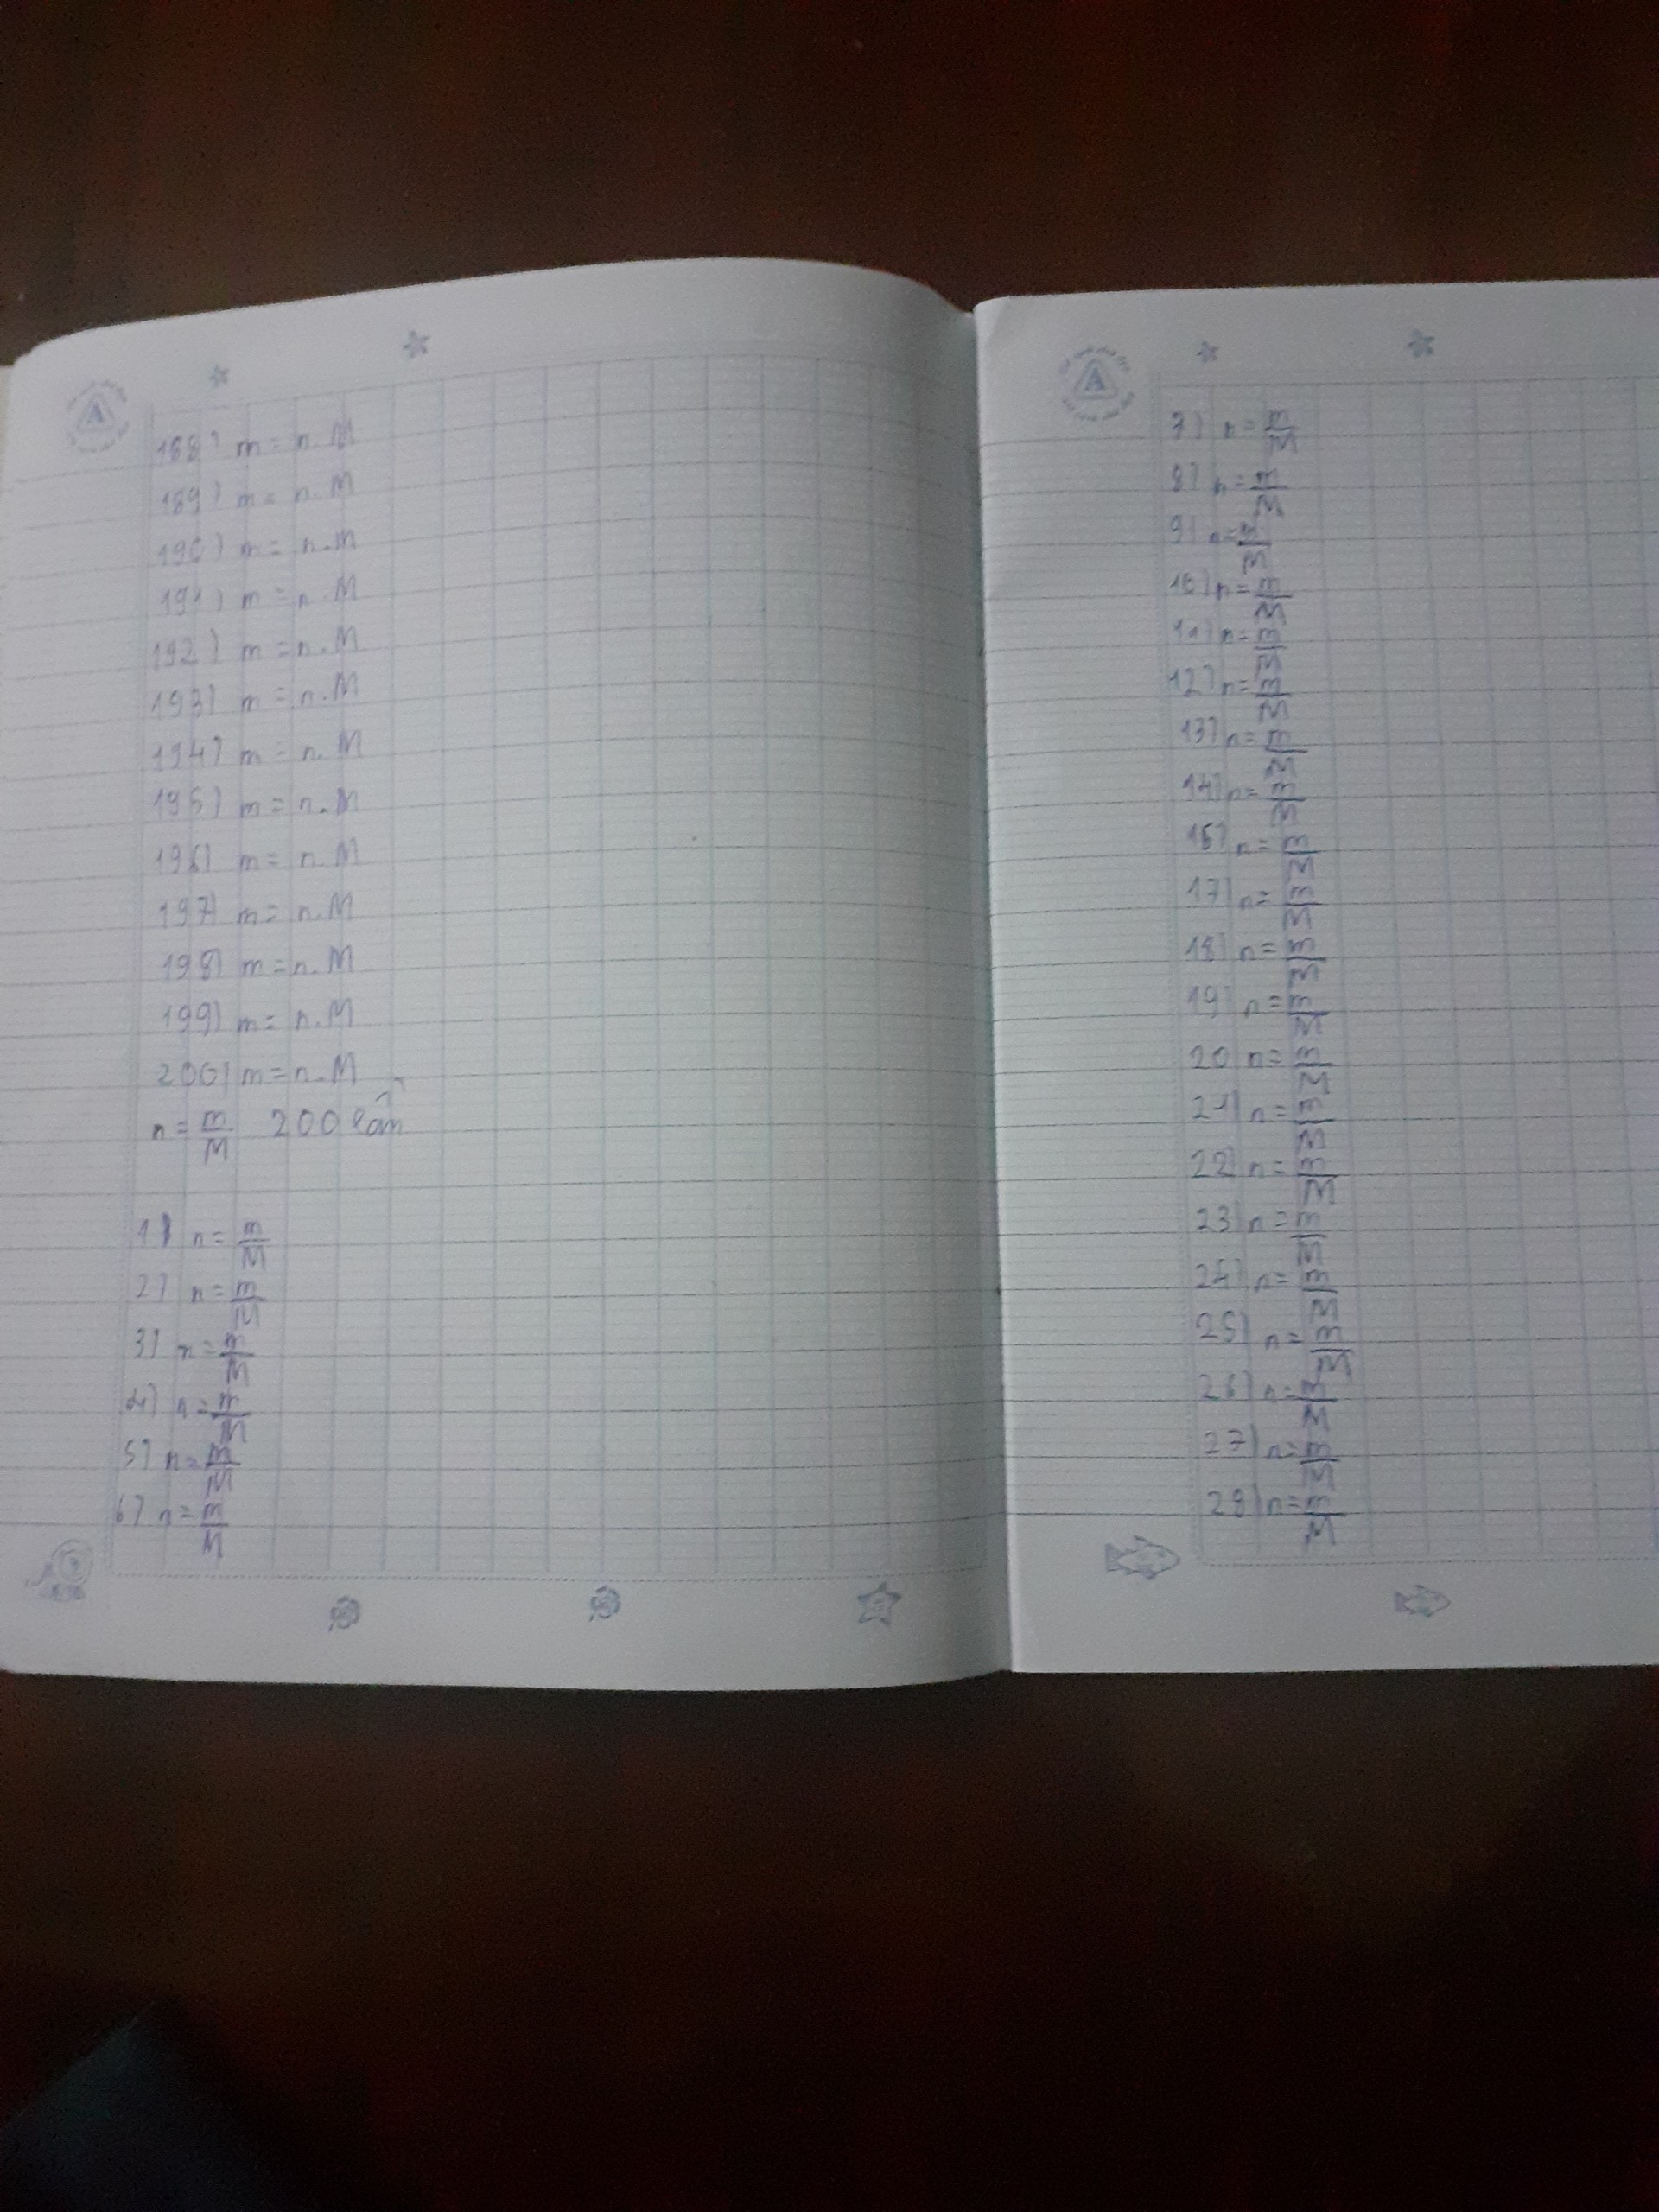 188) m = n. M
189) m = n. M
190) m = n. M
191) m = n. M
192) m = n. M
193) m = n. M
194) m = n. M
195) m = n. M
196) m = n. M
197) m = n. M
198) m = n. M
199) m = n. M
200) m = n. M
n = m/M 200 lần
1) n = m/M
2) n = m/M
3) n = m/M
4) n = m/M
5) n = m/M
6) n = m/M
7) n = m/M
8) n = m/M
9) n = m/M
10) n = m/M
11) n = m/M
12) n = m/M
13) n = m/M
14) n = m/M
n = m/M
17) n = m/M
18) n = m/M
19) n = m/M
20 n = m/M
21) n = m/M
22) n = m/M
23) n = m/M
24) n = m/M
25) n = m/M
26) n = m/M
27) n = m/M
28) n = m/M